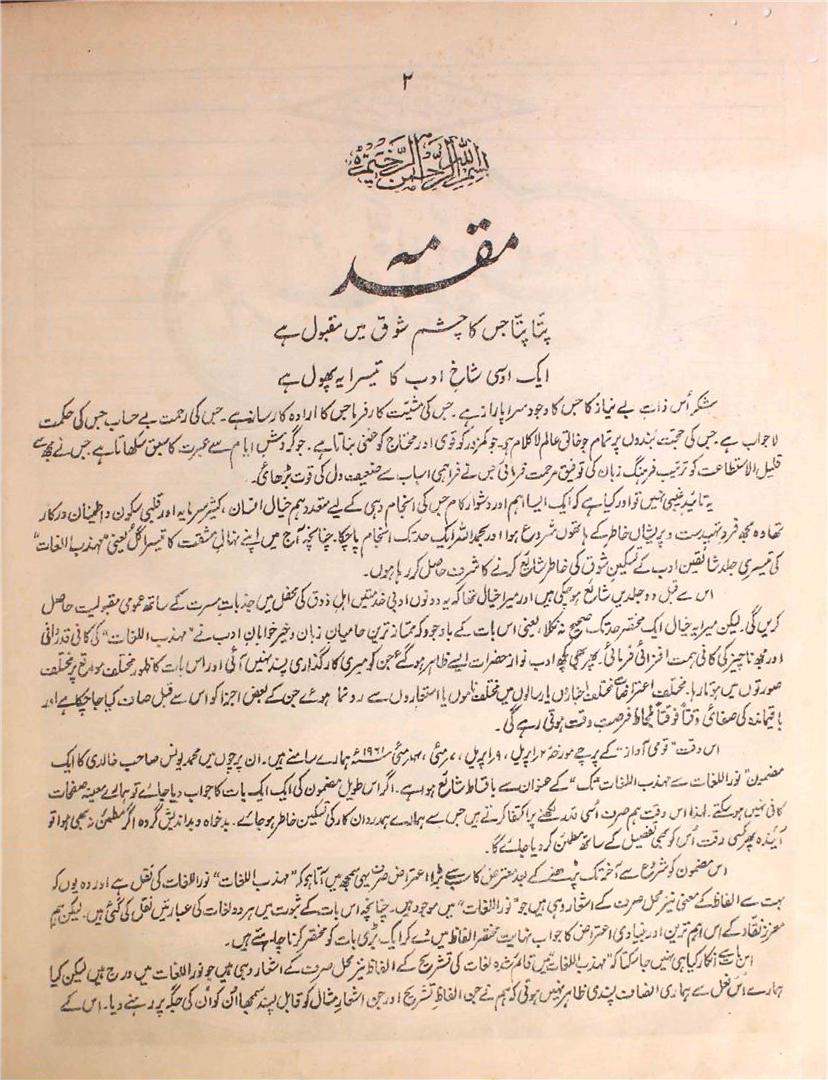 ۲
بسم اللہ الرحمن الرحیم
مقدمہ
پتا پتا جس کا چشم شوق میں مقبول ہے
ایک اوسی شاخِ ادب کا تیسرا یہ پھول ہے
شکر اُس ذاتِ بے نیاز کا جس کا وجود سراپا راز ہے۔ جس کی مشیت کارفرما جس کا ارادہ کارساز ہے۔ جس کی رحمت بے حساب جس کی حکمت
لاجواب ہے۔ جس کی حجت بندوں پر تمام جو خالقِ عالم لاکلام ہے۔ جو کمزور کو قوی اور محتاج کو غنی بناتا ہے۔ جو گردشِ ایام سے عبرت کا سبق سکھاتا ہے جس نے مجھ سے
قلیل الاستطاعت کو ترتیب فرہنگ زبان کی توفیق مرحمت فرمائی جس نے فراہمی اسباب سے ضعیف دل کی قوت بڑھائی۔
یہ تائیدِ غیبی نہیں تو اور کیا ہے کہ ایک ایسا اہم اور دشوار کام جس کی انجام دہی کے لیے متعدد ہم خیال انسان، کثیر سرمایہ اور قلبی سکون و اطمینان درکار
تھا وہ مجھ فرد تہیدست و پریشاں خاطر کے ہاتھوں شروع ہوا اور بحمد اللہ ایک حد تک انجام پا چکا۔ چنانچہ آج میں اپنے نہالِ مشقت کا تیسرا گل یعنی "مہذب اللغات"
کی تیسری جلد شائقین ادب کے تسکین شوق کی خاطر شایع کرنے کا شرف حاصل کر رہا ہوں۔
اس سے قبل دو جلدیں شایع ہو چکی ہیں اور میرا خیال تھا کہ یہ دونوں ادبی خدمتیں اہلِ ذوق کی محفل میں جذباتِ مسرت کے ساتھ عمومی مقبولیت حاصل
کریں گی۔ لیکن میرا یہ خیال ایک مختصر حد تک صحیح نہ نکلا، یعنی اس بات کے باوجود کہ ممتاز ترین حامیانِ زبان و خیر خواہانِ ادب نے "مہذب اللغات" کی کافی قدردانی
اور مجھ ناچیز کی کافی ہمت افزائی فرمائی۔ پھر بھی کچھ ادب نواز حضرات ایسے ظاہر ہو گئے جن کو میری کارگذاری پسند نہیں آئی اور اس بات کا ظہور مختلف مواقع پر مختلف
صورتوں میں ہوتا رہا۔ مختلف اعتراضات مختلف اخباروں یا رسالوں میں مختلف ناموں یا استعاروں سے رونما ہوئے جن کے بعض اجزا کو اس سے قبل صاف کیا جا چکا ہے اور
باقیماندہ کی صفائی وقتاً فوقتاً بلحاظ فرصتِ وقت ہوتی رہے گی۔
اس وقت "قومی آواز" کے پرچے مورخہ ۲؍اپریل، ۹؍اپریل، ۷؍مئی، ۱۴؍مئی ۱۹۶۱ء ہمارے سامنے ہیں۔ ان پرچوں میں محمد یونس صاحب خالدی کا ایک
مضمون "نور اللغات سے مہذب اللغات تک" کے عنوان سے باقساط شایع ہوا ہے۔ اگر اس طویل مضمون کی ایک ایک بات کا جواب دیا جائے تو ہمارے معینہ صفحات
کافی نہیں ہو سکتے۔ لہذا اس وقت ہم صرف اُسی قدر لکھنے پر اکتفا کرتے ہیں جس سے ہمارے ہمدردانِ کار کی تسکین خاطر ہو جائے۔ بدخواہ و بداندیش گروہ اگر مطمئن نہ بھی ہوا تو
آیندہ پھر کسی وقت اُس کو بھی تفصیل کے ساتھ مطمئن کر دیا جائے گا۔
اس مضمون کو شروع سے آخر تک پڑھنے کے بعد معترض کا سب سے بڑا اعتراض صرف یہی سمجھ میں آتا ہے کہ "مہذب اللغات" نور اللغات کی نقل ہے اور وہ یوں کہ
بہت سے الفاظ کے معنی نیز محل صرف کے اشعار وہی ہیں جو "نور اللغات" میں موجود ہیں۔ چنانچہ اس بات کے ثبوت میں ہر دو لغات کی عبارتیں نقل کی گئی ہیں۔ لیکن ہم
معزز نقاد کے اس اہم ترین اور بنیادی اعتراض کا جواب نہایت مختصر الفاظ میں دے کر ایک بڑی بات کو مختصر کرنا چاہتے ہیں۔
اس بات سے انکار کیا ہی نہیں جا سکتا کہ "مہذب اللغات" میں قائم شدہ لغات کی تشریح کے الفاظ نیز محل صرف کے اشعار وہی ہیں جو نور اللغات میں درج ہیں لیکن کیا
ہمارے اس فعل سے ہماری انصاف پسندی ظاہر نہیں ہوتی کہ ہم نے جن الفاظ تشریح اور جن اشعارِ مثال کو قابل پسند سمجھا اُن کو اُن کی جگہ پر رہنے دیا۔ اس کے